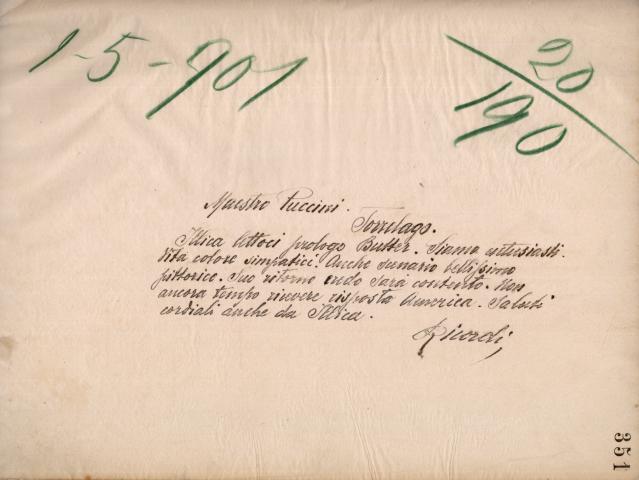 1-5-901
20
190
Maestro Puccini.
Torrelago.
Illica lettoci prologo Butter. Siamo entusiasti.
Vita colore simpatici! Anche scenario bellissimo
pittorico. Suo ritorno credo sarà contento. Non
ancora tempo ricevere risposta America. Saluti
cordiali anche da Illica.
Ricordi,
351